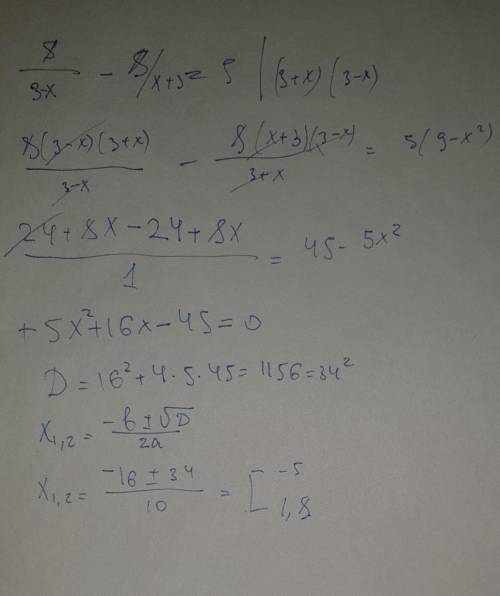 8/(3-x) - 8/x+3 = 5 | (3+x) (3-x)
8(3-x)(3+x)/(3-x) - 8(x+3)(3-x)/(3+x) = 5(9-x²)
(24+8x-24+8x)/1 = 45-5x²
+5x²+16x-45=0
D=16²+4·5·45=1156=34²
x₁,₂= (-b±√D)/2a
x₁,₂= (-16±34)/10 = [ -5
1,8